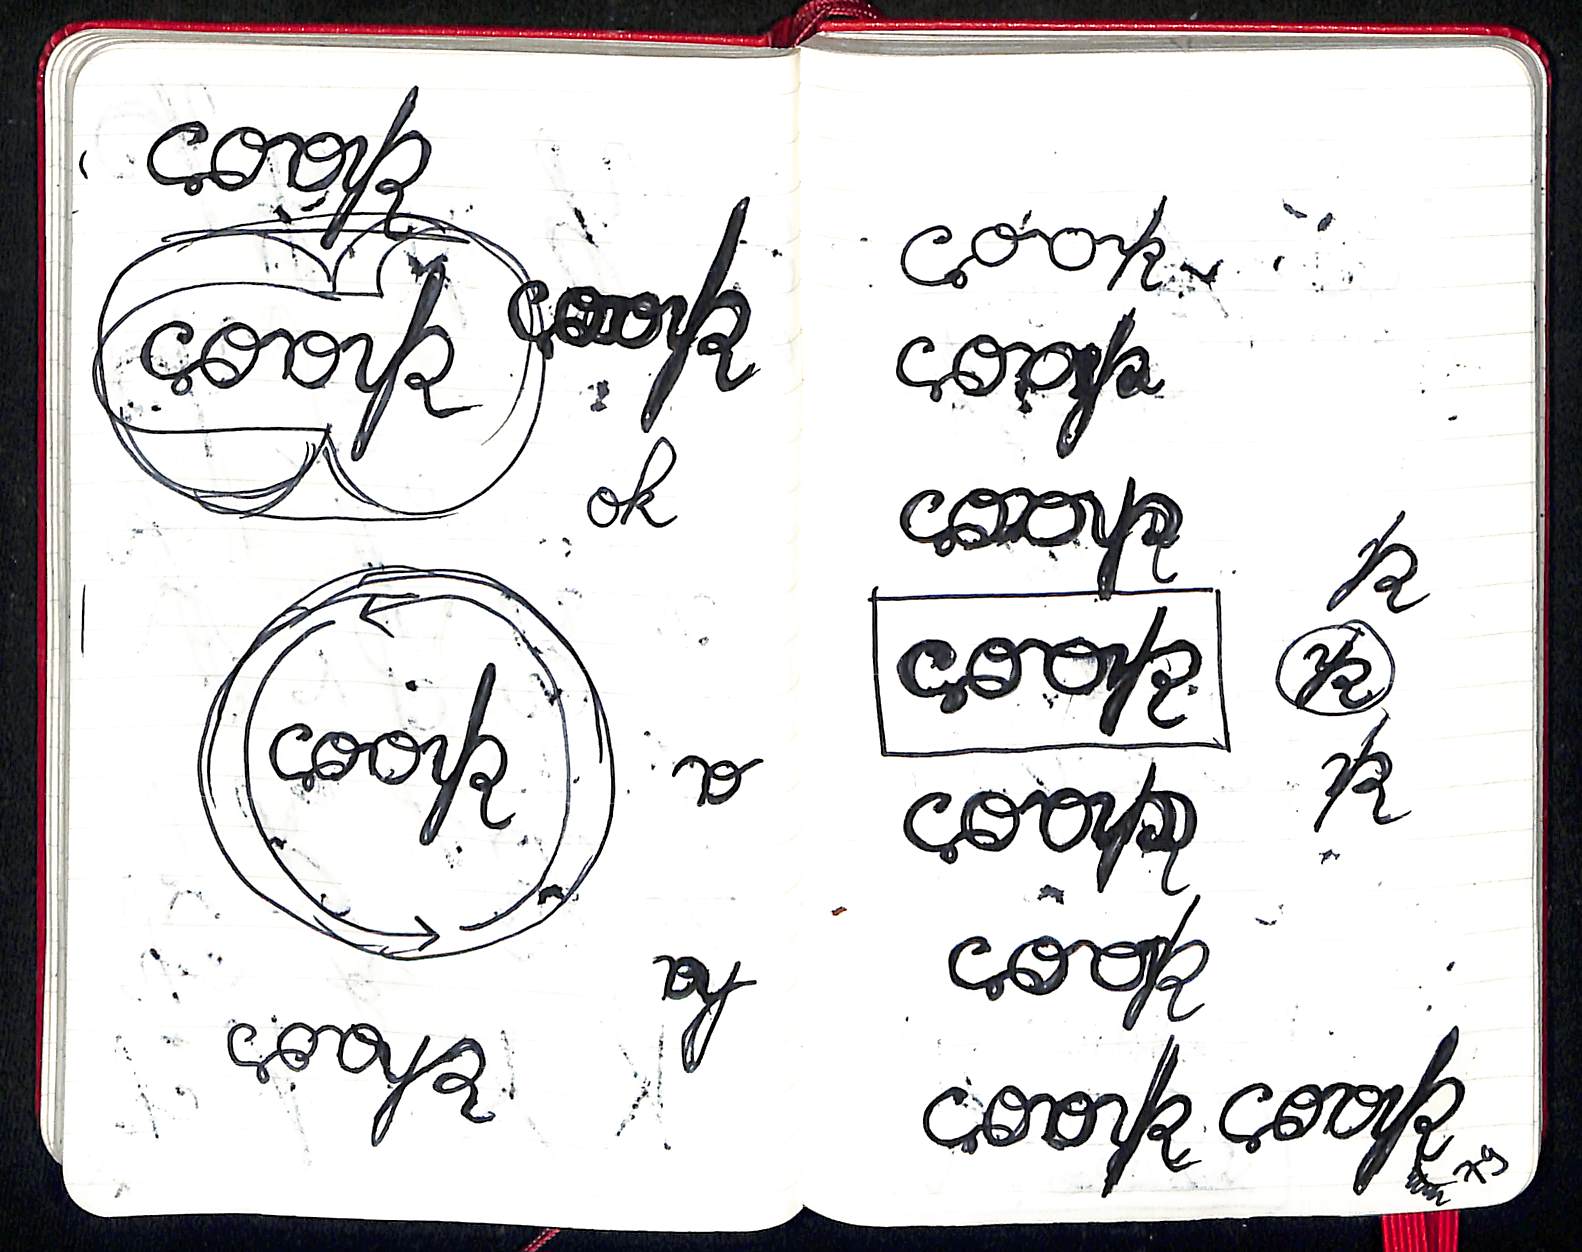 cook
cook
cook
ok
cook
o
oy
cook
cook
cook
cook
k
cook
k
k
cook
cook
cook cook